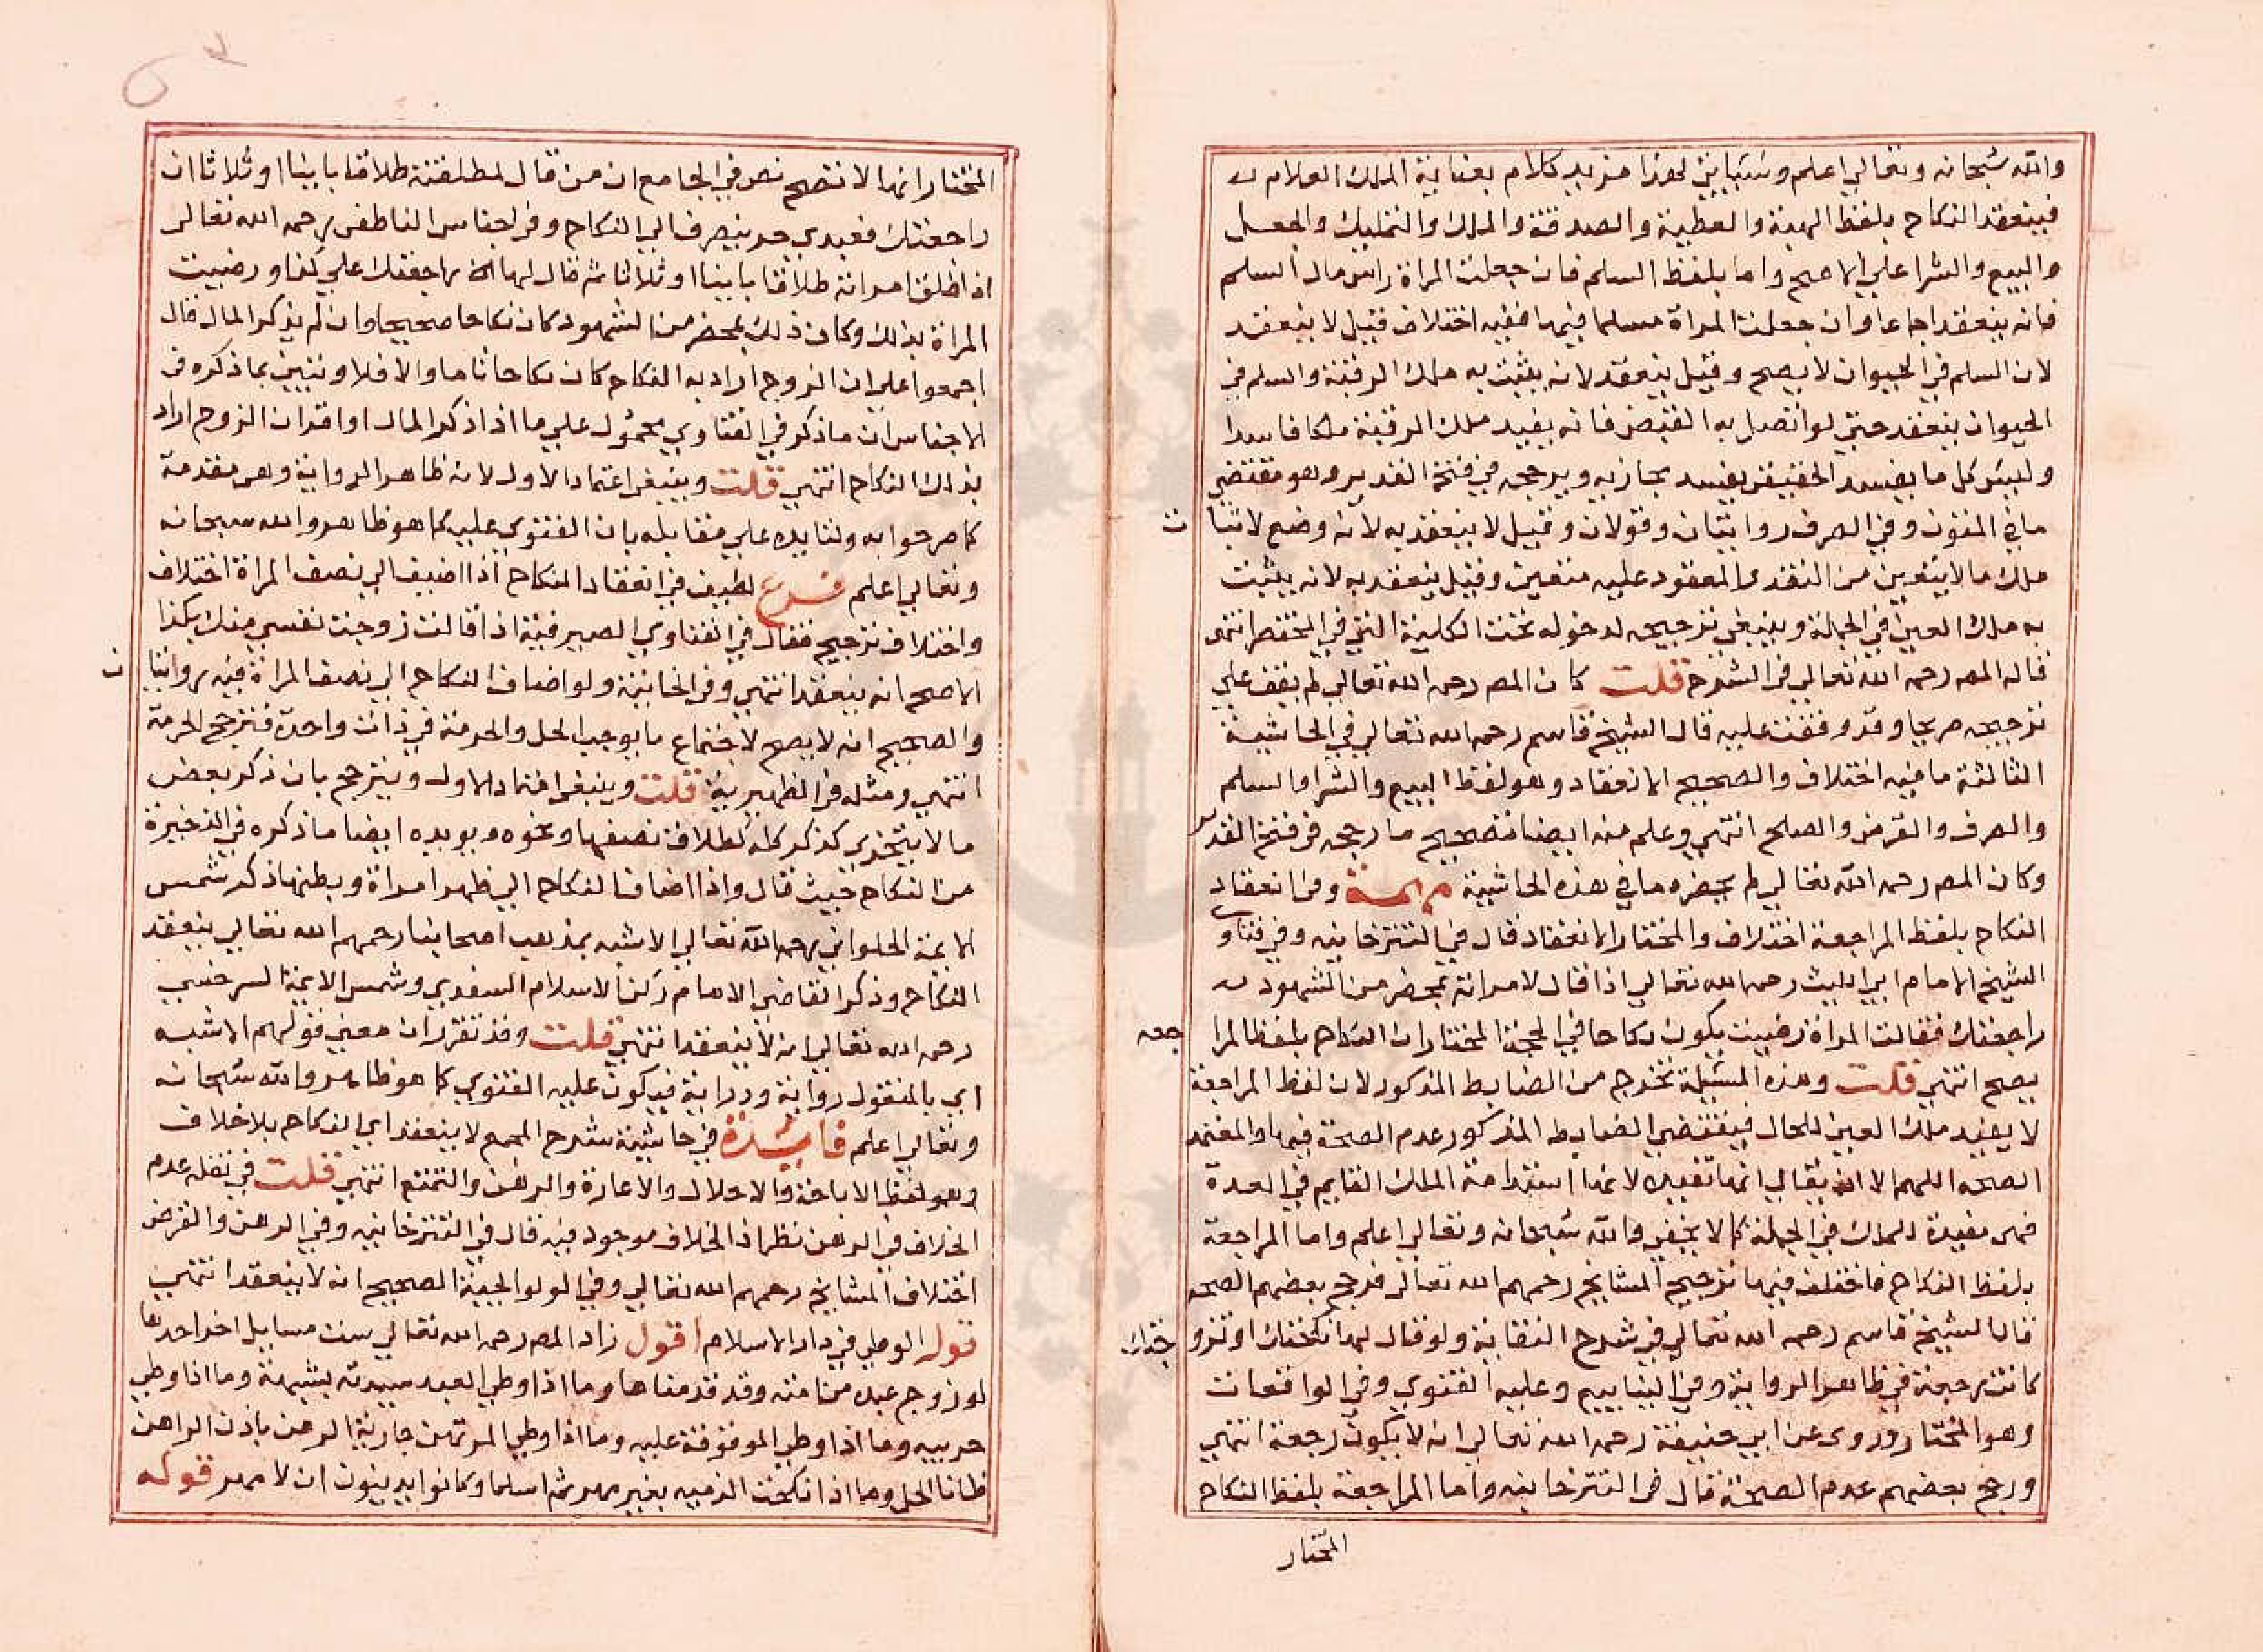 والله سبحانه وتعالى اعلم وسياتي لهذا مزيد كلام بعناية الملك العلام
فينعقد النكاح بلفظ الهبة والعطية والصدقة والملك والتمليك والجعل
والبيع والشرا على الاصح واما بلفظ السلم فان جعلت المراة راس مال السلم
فانه ينعقد اجماعا وان جعلت المراة مسلما فيها ففيه اختلاف قيل لا ينعقد
لان السلم في الحيوان لا يصح وقيل ينعقد لانه يثبت به ملك الرقبة والسلم في
الحيوان ينعقد حتى لو اتصل به القبض فانه يفيد ملك الرقبة ملكا فاسدا
وليس كل ما يفسد الحقيقي يفسد مجازيه ويرجحه في فتح القدير وهو مقتضى
ما في المتون وفي الصرف روايتان وقولان وقيل لا ينعقد به لانه وضع لاثبات
ملك ما لا يتعين من النقد والمعقود عليه متعين وقيل ينعقد به لانه يثبت
به ملك العين في الجملة وينبغي ترجيحه لدخوله تحت الكلية التي في المختصر انتهى
قاله المص رحمه الله تعالى في الشرح قلت كان المص رحمه الله تعالى لم يقف على
ترجيحه صريحا وقد وقفت عليه قال الشيخ قاسم رحمه الله تعالى في الحاشية
الثالثة ما فيه اختلاف والصحيح الانعقاد وهو لفظ البيع والشرا والسلم
والصرف والقرض والصلح انتهى وعلم منه ايضا تصحيح ما رجحه في فتح القدير
وكان المص رحمه الله تعالى لم يحضره ما في هذه الحاشية مهمة وفي انعقاد
النكاح بلفظ المراجعة اختلاف والمختار الانعقاد قال في التترخانيه وفي فتاوى
الشيخ الامام ابي الليث رحمه الله تعالى اذا قال لامراته بمحضر من الشهود
راجعتك فقالت المراة رضيت يكون نكاحا في الحجة المختار ان النكاح بلفظ المراجعه
يصح انتهى قلت وهذه المسئلة تخرج من الضابط المذكور لان لفظ المراجعة
لا يفيد ملك العين للحال فيقتضي الضابط المذكور عدم الصحة فيها والمعتمد
الصحه اللهم الا ان يقال انها تفيده لانها استدامة الملك القايم في العدة
فهى مفيدة للملك في الجملة كما لا يخفى والله سبحانه وتعالى اعلم واما المراجعة
بلفظ النكاح فاختلف فيها ترجيح المشايخ رحمهم الله تعالى فرجح بعضهم الصحه
قال الشيخ قاسم رحمه الله تعالى في شرح النقاية ولو قال لها نكحتك او تزوجتك
كانت رجعة في ظاهر الرواية وفي الينابيع وعليه الفتوى وفي الواقعات
وهو المختار وروى عن ابي حنيفة رحمه الله تعالى انه لا يكون رجعة انتهى
ورجح بعضهم عدم الصحة قال في التترخانيه واما المراجعة بلفظ النكاح
المختار
المختار انها لا تصح نص في الجامع ان من قال لمطلقته طلاقا باينا او ثلاثا ان
راجعتك فعبدي حر ينصرف الى النكاح وفي اجناس الناطفي رحمه الله تعالى
اذا طلق امراته طلاقا باينا او ثلاثا ثم قال لها راجعتك على كذا ورضيت
المراة بذلك وكان ذلك بمحضر من الشهود كان نكاحا صحيحا وان لم يذكر المال قال
اجمعوا على ان الزوج اراد به النكاح كان نكاحا تاما والا فلا وتبين بما ذكره في
الاجناس ان ما ذكر في الفتاوي محمول على ما اذا ذكر المال او اقر ان الزوج اراد
بذلك النكاح انتهى قلت وينبغي اعتماد الاول لانه ظاهر الرواية وهى مقدمة
كما صرحوا به ولتايده على مقابله بان الفتوى عليه كما هو ظاهر والله سبحانه
وتعالى اعلم فرع لطيف في انعقاد النكاح اذا اضيف الى نصف المراة اختلاف
واختلاف ترجيح فقال في الفتاوي الصيرفية اذا قالت زوجت نفسي منك بكذا
الاصح انه ينعقد انتهى وفي الخانية ولو اضاف النكاح الى نصف المراة فيه روايتان
والصحيح انه لا يصح لاجتماع ما يوجب الحل والحرمة في ذات واحدة فترجح الحرمة
انتهى ومثله في الظهيرية قلت وينبغي اعتماد الاول ويترجح بان ذكر بعض
ما لا يتجزى كذكر كله كطلاق نصفها ونحوه ويويده ايضا ما ذكره في الذخيرة
من النكاح حيث قال واذا اضاف النكاح الى ظهر امراة وبطنها ذكر شمس
الائمة الحلواني رحمه الله تعالى الاشبه بمذهب اصحابنا رحمهم الله تعالى ينعقد
النكاح وذكر القاضي الامام ركن الاسلام السغدي وشمس الائمة السرخسي
رحمه الله تعالى انه لا ينعقد انتهى قلت وقد تقرر ان معنى قولهم الاشبه
اي بالمنقول رواية ودراية فيكون عليه الفتوى كما هو ظاهر والله سبحانه
وتعالى اعلم فائدة في حاشية شرح المجمع لا ينعقد اي النكاح بلا خلاف
وهو لفظ الاباحة والاحلال والاعارة والرهن والتمتع انتهى قلت في نقله عدم
الخلاف في الرهن نظر اذ الخلاف موجود فيه قال في التترخانيه وفي الرهن والقرض
اختلاف المشايخ رحمهم الله تعالى وفي الولوالجية الصحيح انه لا ينعقد انتهى
قوله الوطي في دار الاسلام اقول زاد المص رحمه الله تعالى ست مسايل اخر احدها
لو زوج عبده من امته وقد قدمناها وما اذا وطي العبد سيدته بشبهة وما اذا وطي
حربيه وما اذا وطي الموقوفة عليه وما اذا وطي المرتهن جارية الرهن باذن الراهن
ظانا الحل وما اذا نكحت الذميه بغير مهر ثم اسلما وكانوا يدينون ان لا مهر قوله